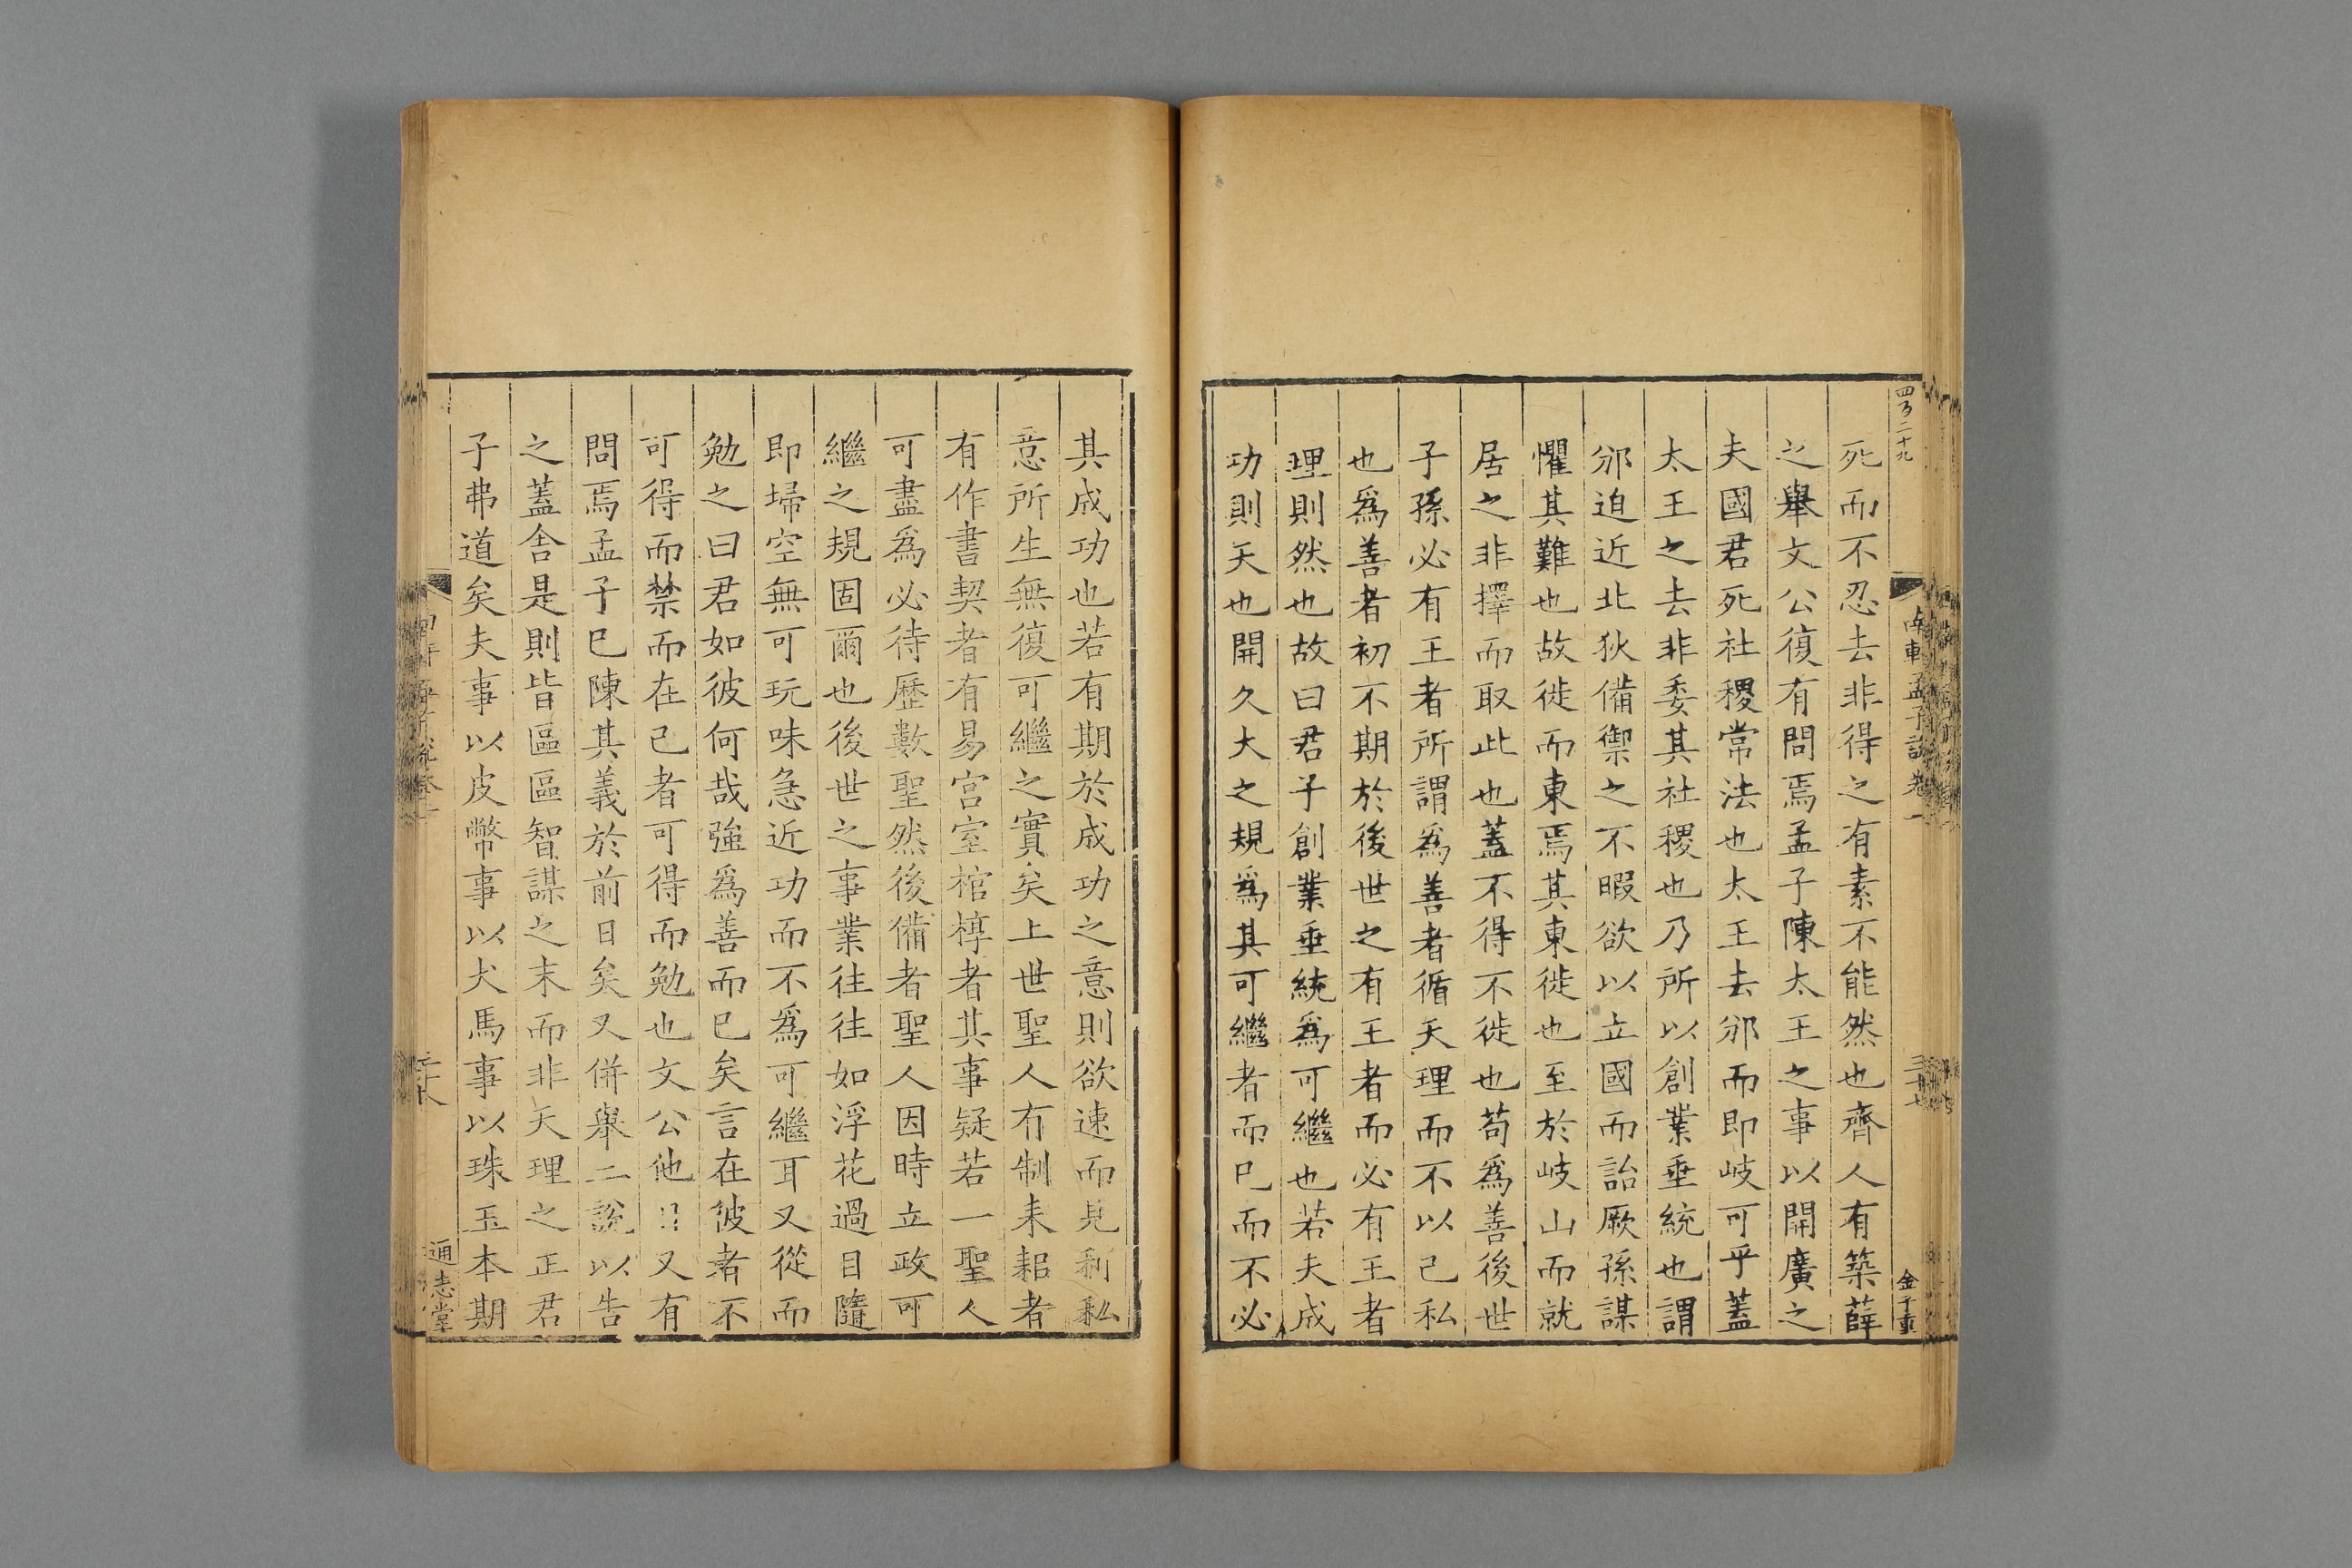 四百二十九
孟子說卷一
金子重
死而不忍去非得之有素不能然也齊人有築薛
之舉文公復有問焉孟子陳太王之事以開廣之
夫國君死社稷常法也太王去邠而即岐可乎蓋
太王之去非委其社稷也乃所以創業垂統也謂
邠迫近北狄備禦之不暇欲以立國而詒厥孫謀
懼其難也故徙而東焉其東徙也至於岐山而就
居之非擇而取此也蓋不得不徙也苟爲善後世
子孫必有王者所謂爲善者循天理而不以己私
也爲善者初不期於後世之有王者而必有王者
理則然也故曰君子創業垂統爲可繼也若夫成
功則天也開久大之規爲其可繼者而已而不必
其成功也若有期於成功之意則欲速而見利私
意所生無復可繼之實矣上世聖人有制耒耜者
有作書契者有易宮室棺椁者其事疑若一聖人
可盡爲必待歷數聖然後備者聖人因時立政可
繼之規固爾也後世之事業往往如浮花過目隨
即埽空無可玩味急近功而不爲可繼耳又從而
勉之曰君如彼何哉強爲善而已矣言在彼者不
可得而禁而在己者可得而勉也文公他日又有
問焉孟子已陳其義於前日矣又併舉二說以告
之蓋舍是則皆區區智謀之末而非天理之正君
子弗道矣夫事以皮幣事以犬馬事以珠玉本期
通志堂